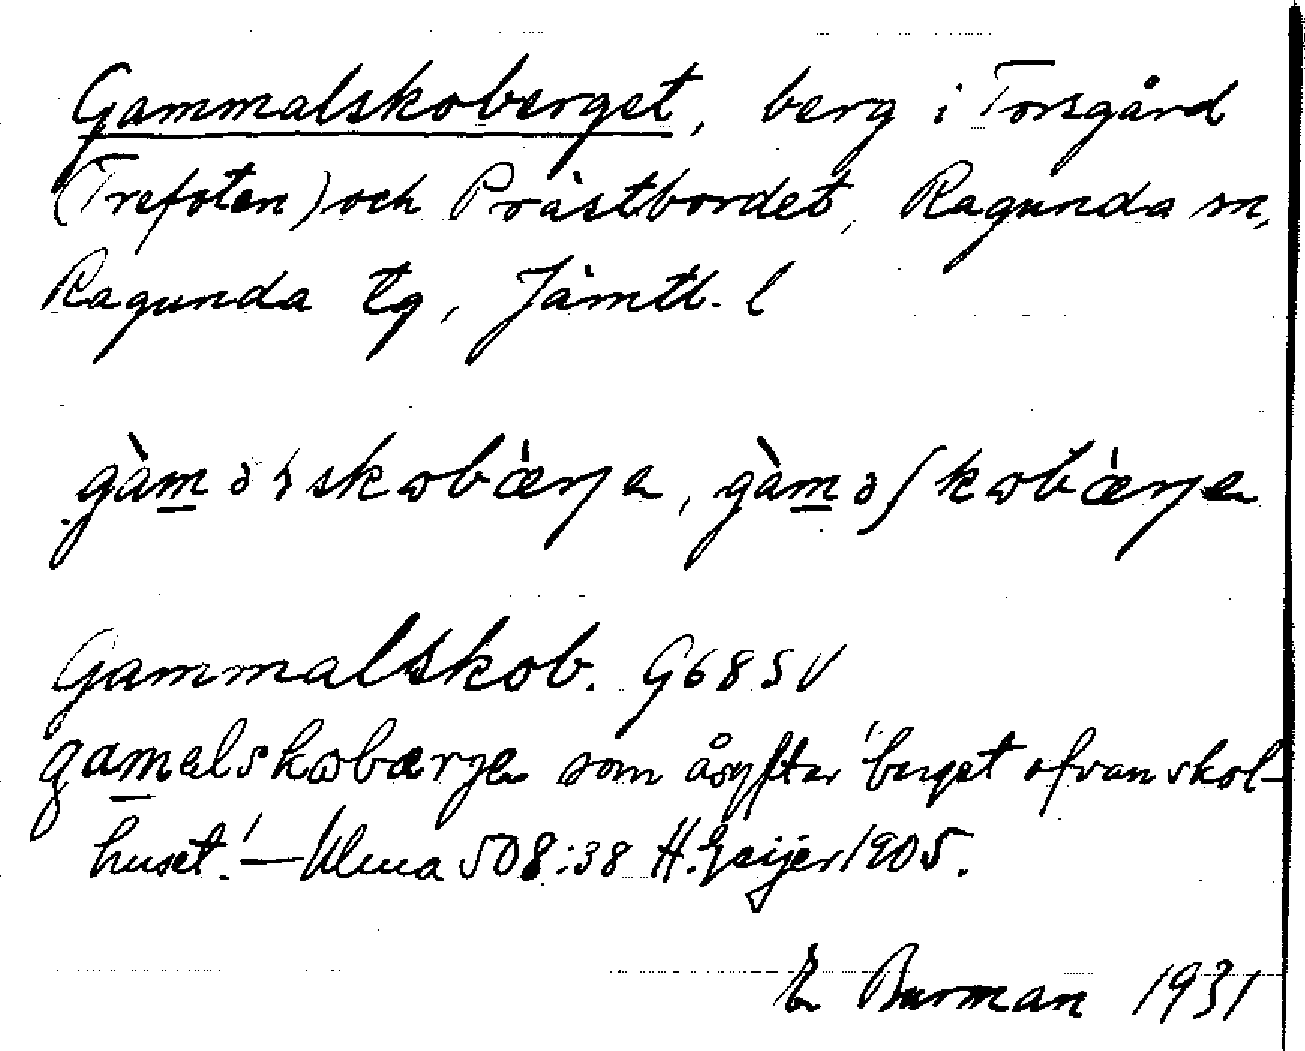 Gammalskoberget, berg i Torsgård
(Trefoten) och Prästbordet, Ragunda sn,
Ragunda tg, Jämtl. l
Gammalskob. G68SV
gamalskobærje som åsyftar "berget ofvan skol-
huset! — Ulma 508:38 H. Geijer 1905.
E Burman 1931